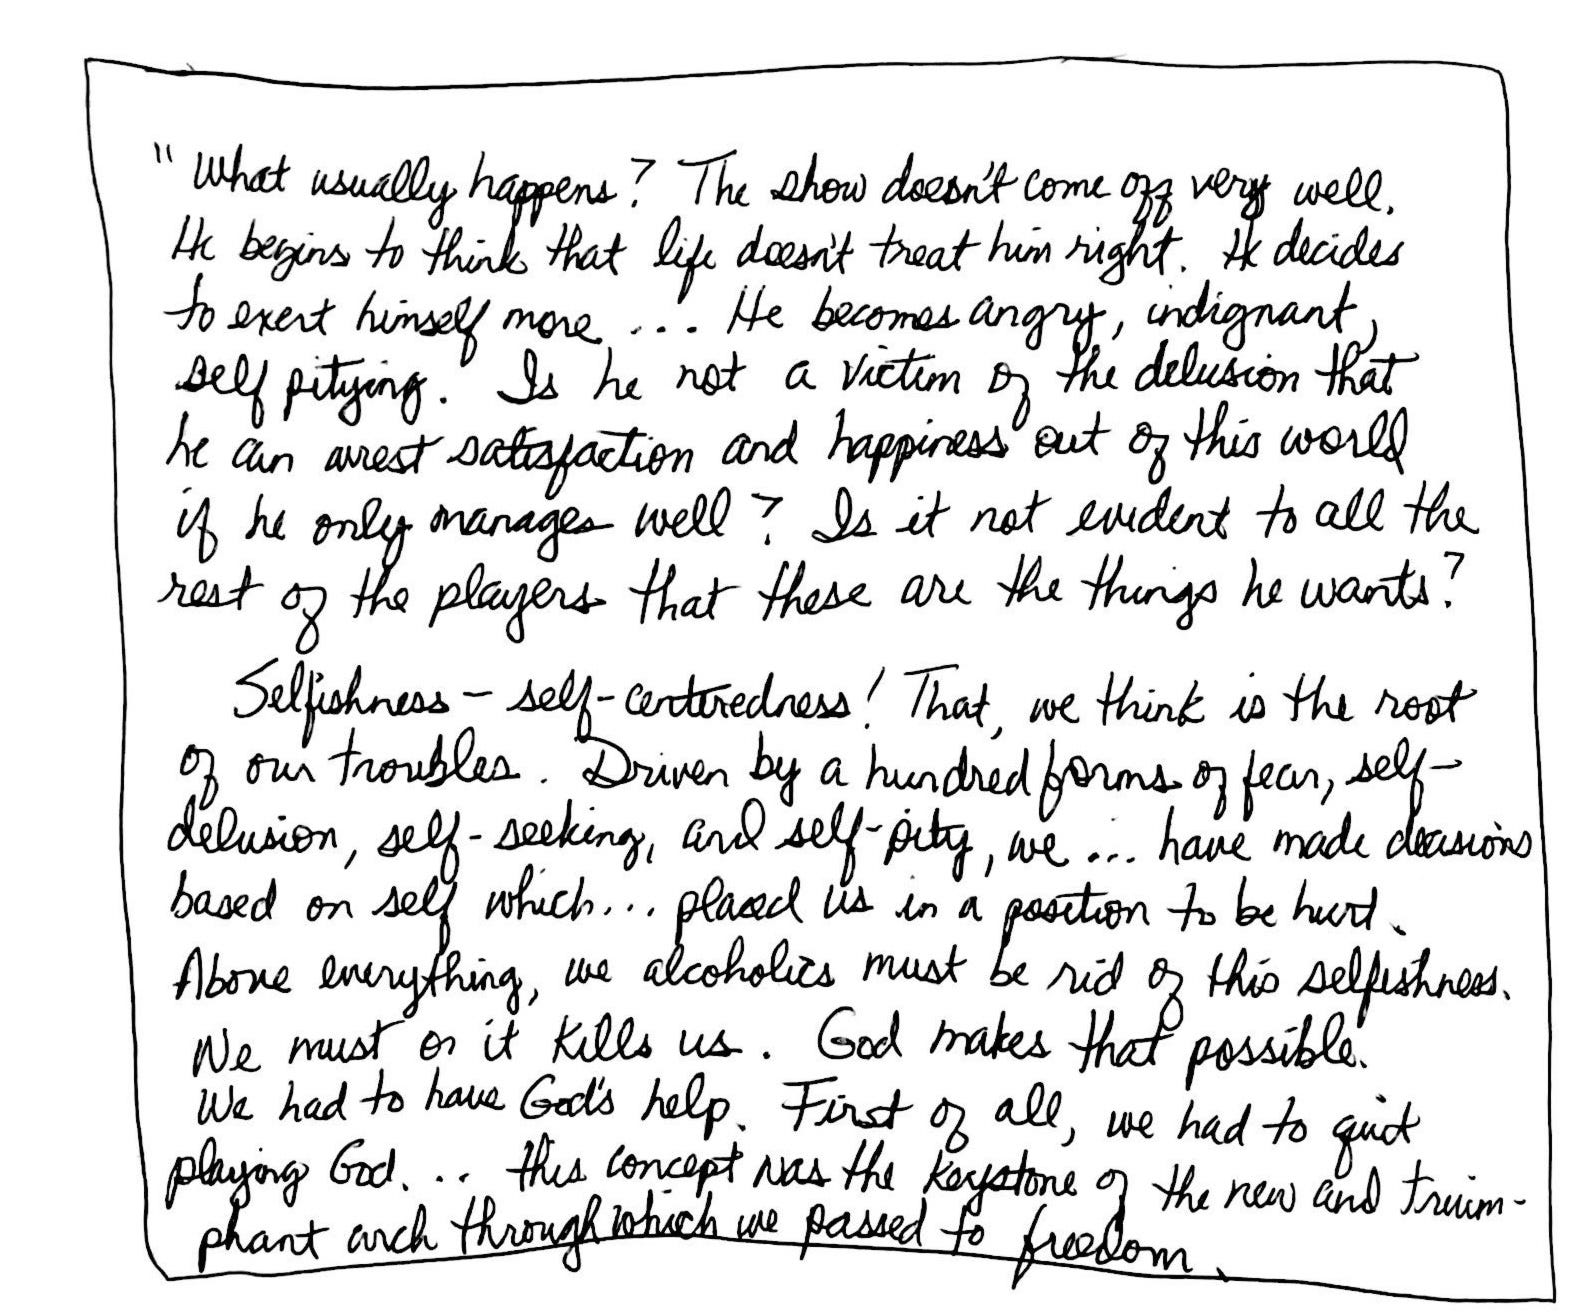 "What usually happens? The show doesn't come off very well.
He begins to think that life doesn't treat him right. He decides
to exert himself more .... He becomes angry, indignant,
self pitying. Is he not a victim of the delusion that
he can arrest satisfaction and happiness out of this world
if he only manages well? Is it not evident to all the
rest of the players that these are the things he wants?
Selfishness - self-centeredness! That, we think is the root
of our troubles. Driven by a hundred forms of fear, self-
delusion, self-seeking, and self-pity, we ... have made decisions
based on self which... placed us in a position to be hurt.
Above everything, we alcoholics must be rid of this selfishness.
We must or it kills us. God makes that possible.
We had to have God's help. First of all, we had to quit
playing God. ... this concept was the keystone of the new and trium-
phant arch through which we passed to freedom.